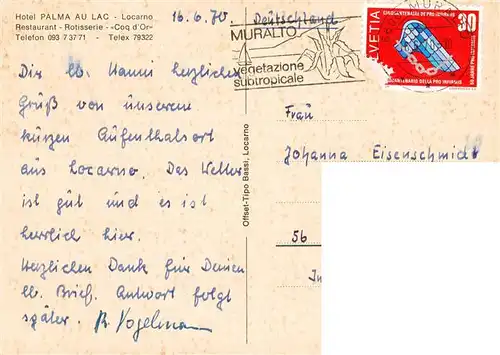 Hotel PALMA AU LAC - Locarno
Restaurant - Rotisserie - «Coq d'Or»
Telefon 093 7 37 71 - Telex 79322
16.6.70
Deutschland
MURALTO
vegetazione
subtropicale
HELVETIA
30
CINQUANTENAIRE DE PRO INFIRMIS
CINQUANTENARIO DELLA PRO INFIRMIS
50 JAHRE PRO INFIRMIS
Dir lb. Hanni herzlichen
Gruß von unserem
kurzen Aufenthalsort
aus Locarno. Das Wetter
ist gut und es ist
herrlich hier.
Herzlichen Dank für Deinen
lb. Brief. Antwort folgt
später. R. Vogelmann
Offset-Tipo Bassi, Locarno
Frau
Johanna Eisenschmidt
56